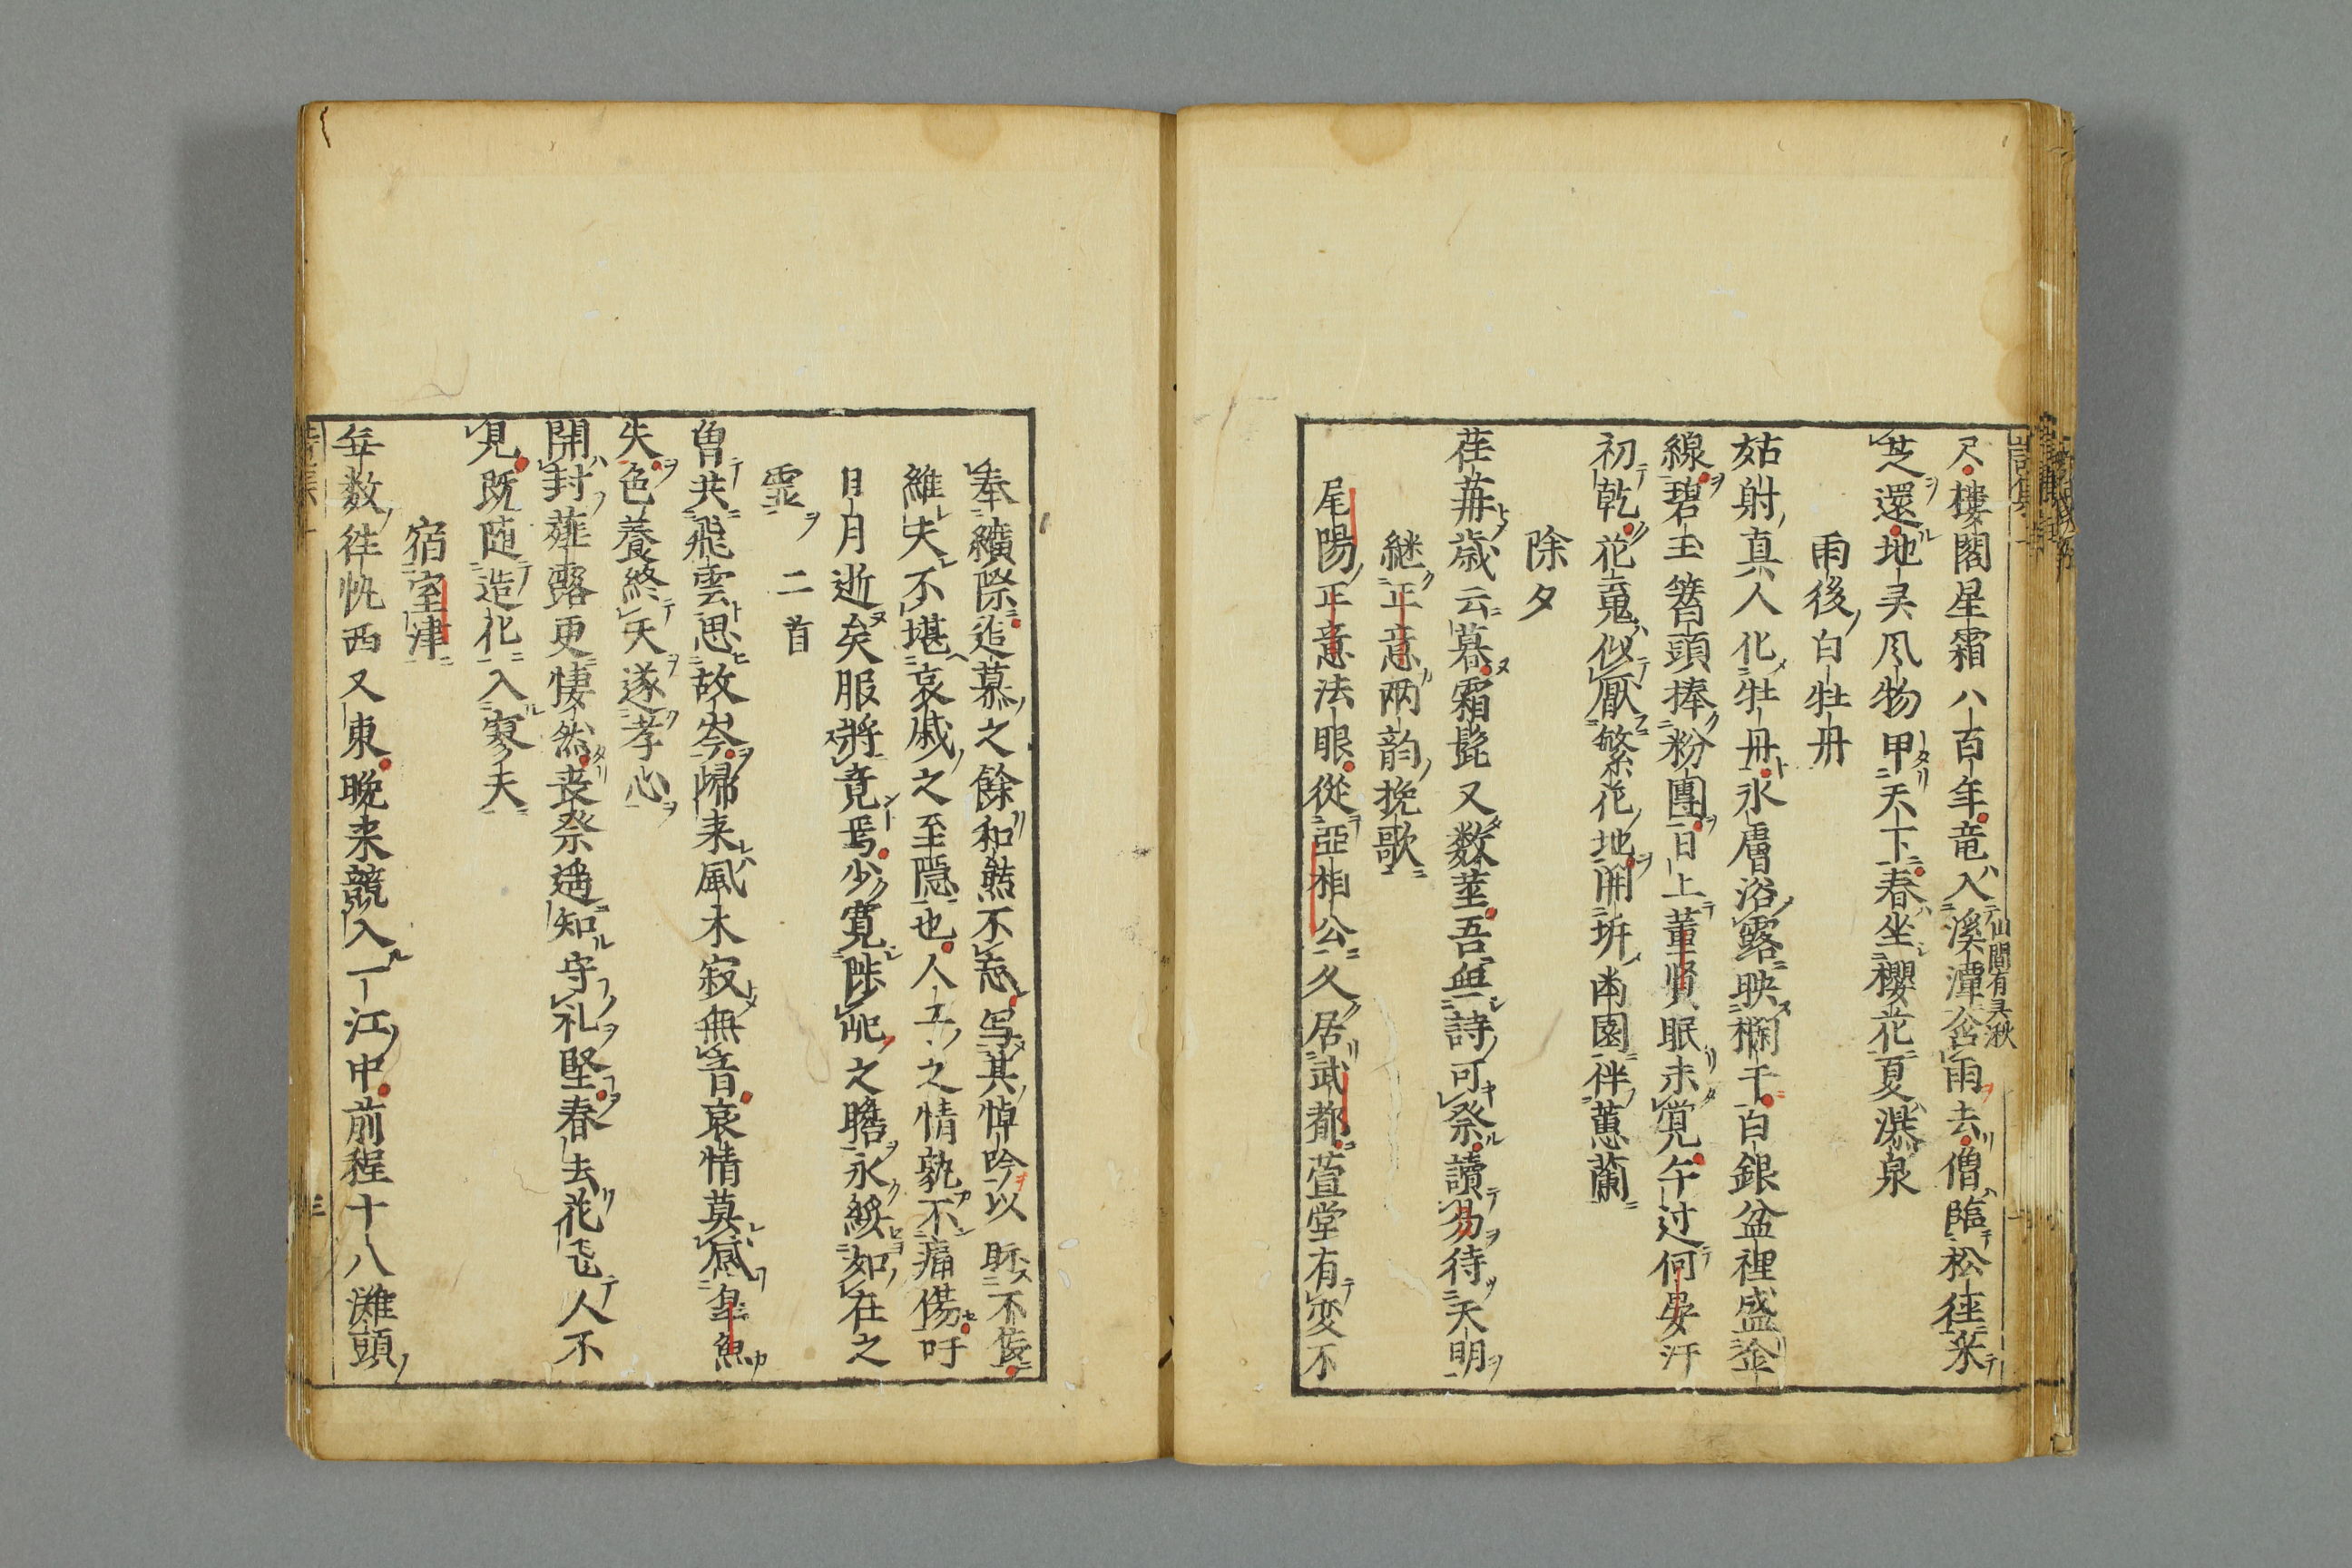 尺樓閣星霜八百年竜入溪潭含雨去僧臨松徑采
山間有灵湫
芝還地灵風物甲天下春坐櫻花夏瀑泉
雨後白牡丹
姑射真人化牡丹氷膚浴露映欄干白銀盆裡盛金
線碧玉簪頭捧粉團日上董賢眠未覚午过何晏汗
初乾花嵬似厭繁花地開坼南園伴蕙蘭
除夕
荏苒歳云暮霜髭又数莖吾無詩可祭讀易待天明
継正意両韵挽歌
尾陽正意法眼從亞相公久居武都萱堂有変不
奉纊際追慕之餘和㷱不忘写其悼吟以眎不佞
維夫不堪哀戚之至隠也人子之情孰不痛傷吁
日月逝矣服将竟焉少寛陟屺之瞻永綏如在之
霊 二首
曽共飛雲思故岑帰来風木寂無音哀情莫感皐魚
失色養終天遂孝心
開封薤露更悽然喪祭遙知守礼堅春去花飞人不
見既随造化入寥天
宿室津
年数往忨西又東晚来競入一江中前程十八灘頭